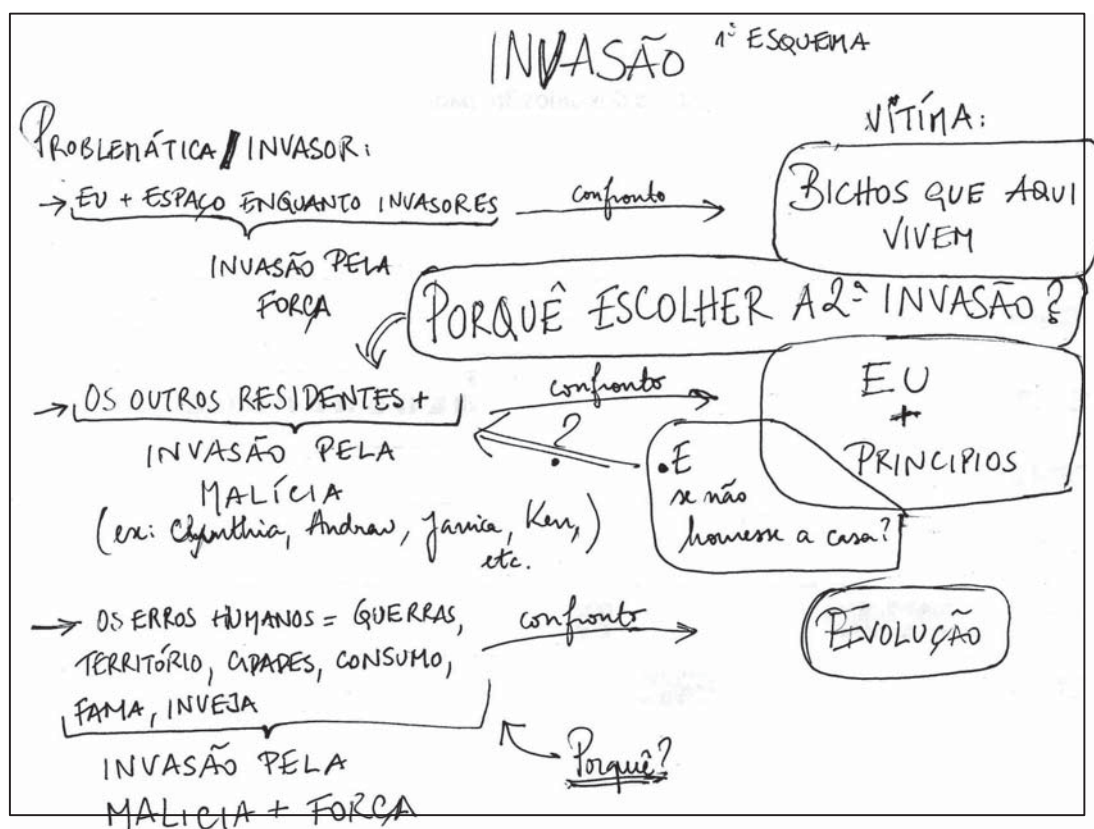 INVASÃO 1º ESQUEMA
PROBLEMÁTICA / INVASOR:
VÍTIMA:
→ EU + ESPAÇO ENQUANTO INVASORES
confronto
BICHOS QUE AQUI
VIVEM
INVASÃO PELA
FORÇA
PORQUÊ ESCOLHER A 2ª INVASÃO?
→ OS OUTROS RESIDENTES +
confronto
EU
+
PRINCIPIOS
INVASÃO PELA
MALÍCIA
(ex: Chynthia, Andrav, Janica, Ken,
etc.)
?
• E
se não
houvesse a casa?
→ OS ERROS HUMANOS = GUERRAS,
TERRITÓRIO, CIDADES, CONSUMO,
FAMA, INVEJA
confronto
REVOLUÇÃO
INVASÃO PELA
MALICIA + FORÇA
Porquê?